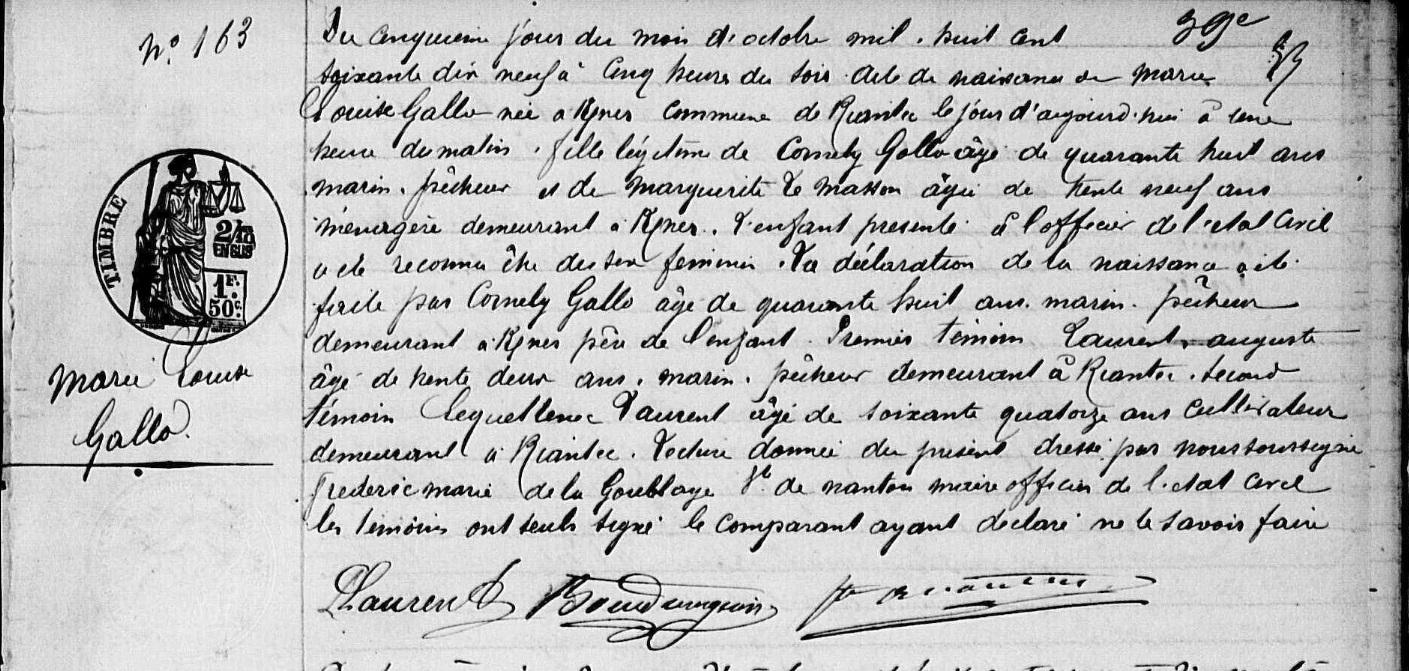 N° 163
39e
Du cinquieme jour du mois d'octobre mil huit cent
soixante dix neuf à cinq heures du soir acte de naissance de Marie
Louise Gallo née à Kner commune de Riantec le jour d'aujourd'hui à une
heure du matin, fille légitime de Cornely Gallo âgé de quarante huit ans
marin pêcheur et de Marguerite Le Masson âgée de trente neuf ans
ménagère demeurant à Kner. L'enfant presenté à l'officier de l'etat civil
a eté reconnu être du sexe feminin. La déclaration de la naissance a été
faite par Cornely Gallo âgé de quarante huit ans marin pêcheur
demeurant à Kner père de l'enfant. Premier témoin Laurent auguste
âgé de trente deux ans, marin pêcheur demeurant à Riantec. Second
témoin Laurent âgé de soixante quatorze ans cultivateur
demeurant à Riantec. Lecture donnée du présent dressé par nous soussigné
frederic marie de la Vte de nanton maire officier de l'etat civil
les témoins ont seuls signé le comparant ayant déclaré ne le savoir faire
TIMBRE
2/10
EN SUS
1F.
50c.
Marie Louise
Gallo.
Laurent